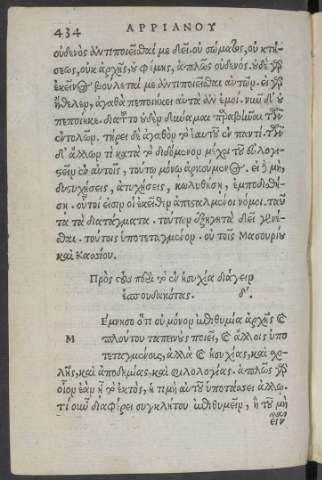 434 ΑΡΡΙΑΝΟΥ
οὐδενὸς ἀντιποιεῖσθαί με δεῖ. οὐ σώματος, οὐ κτή-
σεως, οὐκ ἀρχῆς, οὐ φήμης, ἁπλῶς οὐδενός. οὐδὲ γὰρ
ἐκεῖνος βούλεταί με ἀντιποιεῖσθαι αὐτῶν. εἰ γὰρ
ἤθελεν, ἀγαθὰ πεποιήκει αὐτὰ ἂν ἐμοί. νῦν δ' οὐ
πεποίηκε. διὰ τοῦτο οὐδὲν δύναμαι παραβῆναι τῶν
ἐντολῶν. τήρει τὸ ἀγαθὸν τὸ ἑαυτοῦ ἐν παντί. τῶν
δ' ἄλλων τὶ κατὰ τὸ διδόμενον μέχρι τοῦ εὐλογι-
στεῖν ἐν αὐτοῖς, τούτῳ μόνῳ ἀρκούμενος. εἰ δὲ μὴ,
δυστυχήσεις, ἀτυχήσεις, κωλυθήσῃ, ἐμποδισθή-
σῃ. οὗτοί εἰσιν οἱ ἐκεῖθεν ἀπεσταλμένοι νόμοι. ταῦ
τα τὰ διατάγματα. τούτων ἐξηγητὴν δεῖ γενέ-
σθαι. τούτοις ὑποτεταγμένον. οὐ τοῖς Μασουρίου
καὶ Κασσίου.
Πρὸς τοὺς περὶ τὸ ἐν ἡσυχίᾳ διάγειν
ἐσπουδακότας. δ'.
Μέμνησο ὅτι οὐ μόνον ἐπιθυμία ἀρχῆς καὶ
πλούτου ταπεινοὺς ποιεῖ, καὶ ἄλλοις ὑπο
τεταγμένους, ἀλλὰ καὶ ἡσυχίας, καὶ χο-
λῆς, καὶ ἀποδημίας, καὶ φιλολογίας. ἁπλῶς γὰρ
οἷον ἐὰν ᾖ τὸ ἐκτὸς, ἡ τιμὴ αὐτοῦ ὑποτάσσει ἄλλῳ.
τί οὖν διαφέρει συγκλήτου ἐπιθυμεῖν, ἢ τοῦ μὴ